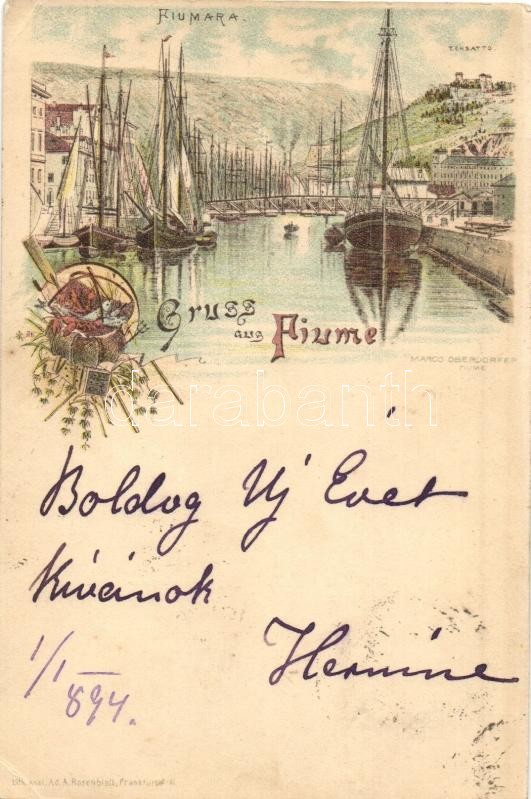 FIUMARA.
TERSATTO
Gruss
aus
Fiume
MARCO OBERDORFER
FIUME
darabanth
Boldog Uj Evet
Kivánok
1/1
894.
Hermine
Lith. Anst. Ad. A. Rosenblatt, Frankfurt